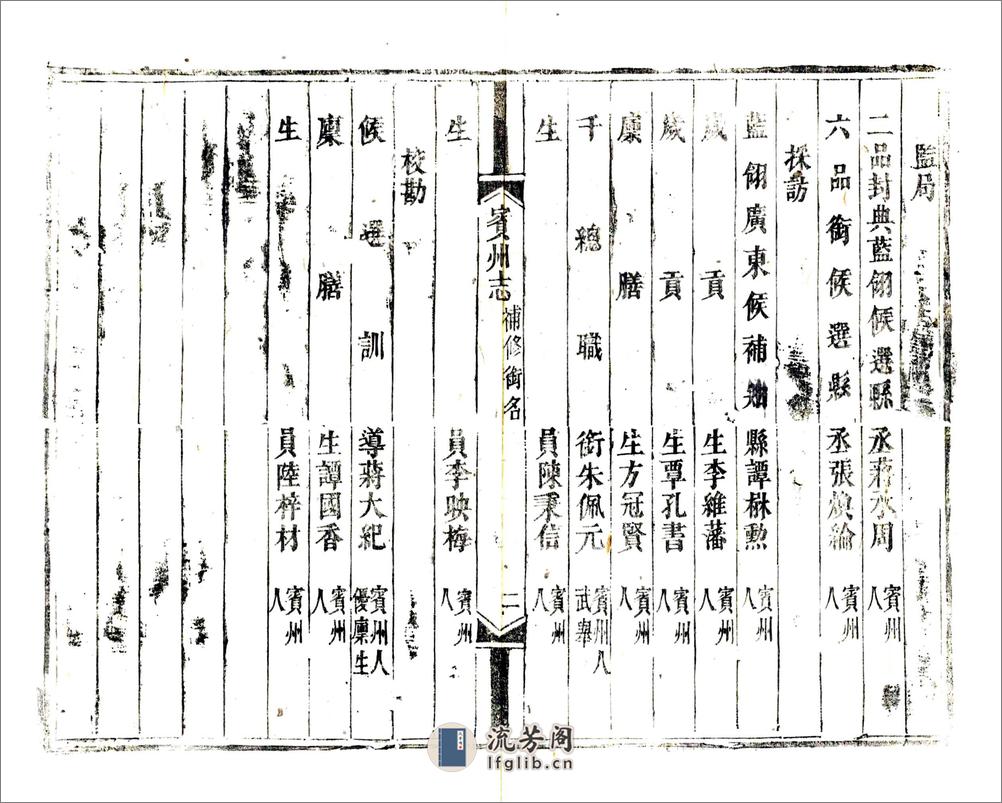 監局
二品封典藍翎候選縣丞蔣永周 賓州人
六品銜候選縣丞張煥綸 賓州人
採訪
藍翎廣東候補知縣譚楙勲 賓州人
歲貢生李維藩 賓州人
歲貢生覃孔書 賓州人
廩膳生方冠賢 賓州人
千總職銜朱佩元 賓州人武舉
生員陳秉信 賓州人
賓州志 補修銜名 二
生員李映梅 賓州人
校勘
候選訓導蔣大紀 賓州人優廩生
廩膳生譚國香 賓州人
生員陸梓材 賓州人
流芳阁
lfglib.cn